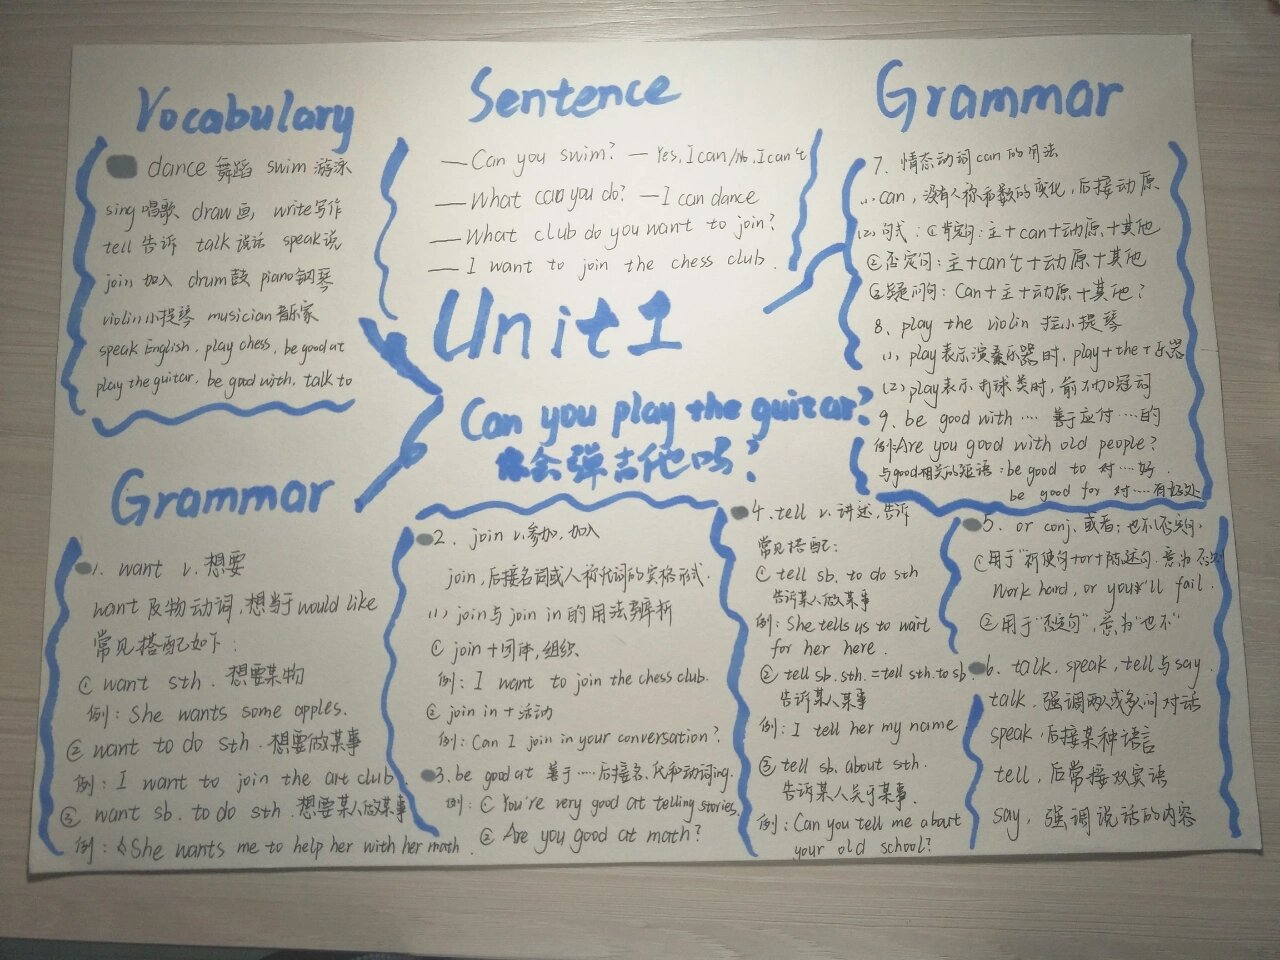 Vocabulary
dance 舞蹈 swim 游泳
sing 唱歌 draw 画, write 写作
tell 告诉 talk 说话 speak 说
join 加入 drum 鼓 piano 钢琴
violin 小提琴 musician 音乐家
speak English, play chess, be good at
play the guitar, be good with, talk to
Sentence
—Can you swim? — Yes, I can/No, I can't
—What can you do? —I can dance
—What club do you want to join?
—I want to join the chess club.
Unit1
Can you play the guitar?
你会弹吉他吗?
Grammar
7. 情态动词can的用法
(1) can, 没有人称和数的变化, 后接动原
(2) 句式: ①肯定句: 主+can+动原+其他
②否定句: 主+can't+动原+其他
③疑问句: Can+主+动原+其他?
8. play the violin 拉小提琴
(1) play表示演奏乐器时, play+the+乐器
(2) play表示打球类时, 前不加冠词
9. be good with … 善于应付…的
例: Are you good with old people?
与good相关的短语: be good to 对…好.
be good for 对…有好处
Grammar
1. want v. 想要
want 及物动词, 相当于would like
常见搭配如下:
① want sth. 想要某物
例: She wants some apples.
② want to do sth. 想要做某事
例: I want to join the art club.
③ want sb. to do sth. 想要某人做某事
例: She wants me to help her with her math.
2. join v. 参加, 加入
join, 后接名词或人称代词的宾格形式.
(1) join与join in的用法辨析
① join+团体, 组织.
例: I want to join the chess club.
② join in+活动
例: Can I join in your conversation?
3. be good at 善于……后接名、代和动词ing.
例: ① You're very good at telling stories.
② Are you good at math?
4. tell v. 讲述, 告诉
常见搭配:
① tell sb. to do sth
告诉某人做某事
例: She tells us to wait
for her here.
② tell sb. sth. =tell sth. to sb
告诉某人某事
例: I tell her my name
③ tell sb. about sth.
告诉某人关于某事.
例: Can you tell me about
your old school?
5. or conj. 或者; 也不(否定句)
①用于"祈使句+or+陈述句. 意为 否则
Work hard, or you'll fail.
②用于"否定句", 意为"也不"
6. talk, speak, tell与say.
talk, 强调两人或多人间对话
speak, 后接某种语言
tell, 后常接双宾语
say, 强调说话的内容